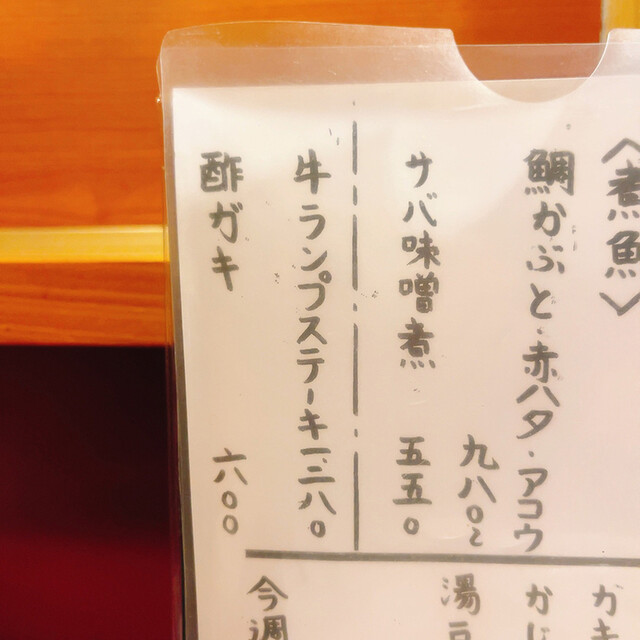 〈煮魚〉
鯛かぶと・赤ハタ・アコウ
九八〇〜
サバ味噌煮 五五〇
牛ランプステーキ 一三八〇
酢ガキ 六〇〇
ガキ
かじ
湯豆
今週